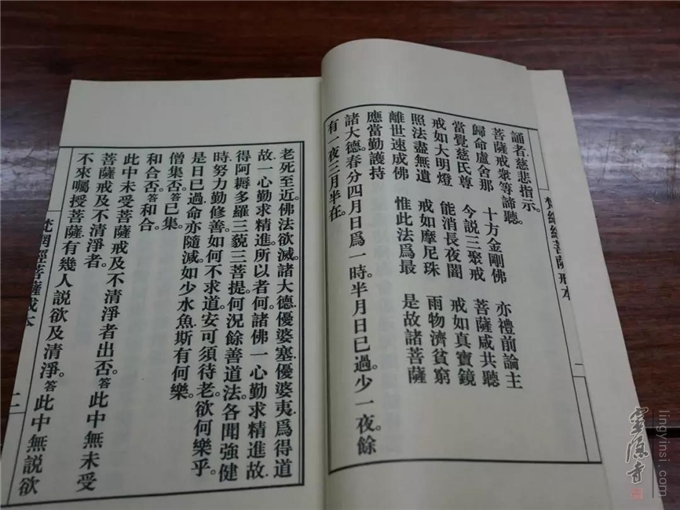 誦者慈悲指示。
菩薩戒衆等諦聽。
歸命盧舍那 十方金剛佛 亦禮前論主
當覺慈氏尊 今説三聚戒 菩薩咸共聽
戒如大明燈 能消長夜闇 戒如真寶鏡
照法盡無遺 戒如摩尼珠 雨物濟貧窮
離世速成佛 惟此法爲最 是故諸菩薩
應當勤護持
諸大德。春分四月日爲一時。半月日已過。少一夜。餘
有一夜三月半在。
老死至近。佛法欲滅。諸大德。優婆塞。優婆夷。爲得道
故。一心勤求精進。所以者何。諸佛一心勤求精進故。
得阿耨多羅三藐三菩提。何況餘善道法。各聞強健
時。努力勤修善。如何不求道。安可須待老。欲何樂乎。
是日已過。命亦隨減。如少水魚。斯有何樂。
僧集否。答已集。
和合否。答和合。
此中未受菩薩戒及不清淨者出否。答此中無未受
菩薩戒及不清淨者。
不來囑授菩薩有幾人説欲及清淨。答此中無説欲
梵網經菩薩戒本
二
梵網經菩薩戒本
二
靈隱寺
lingyinsi.com